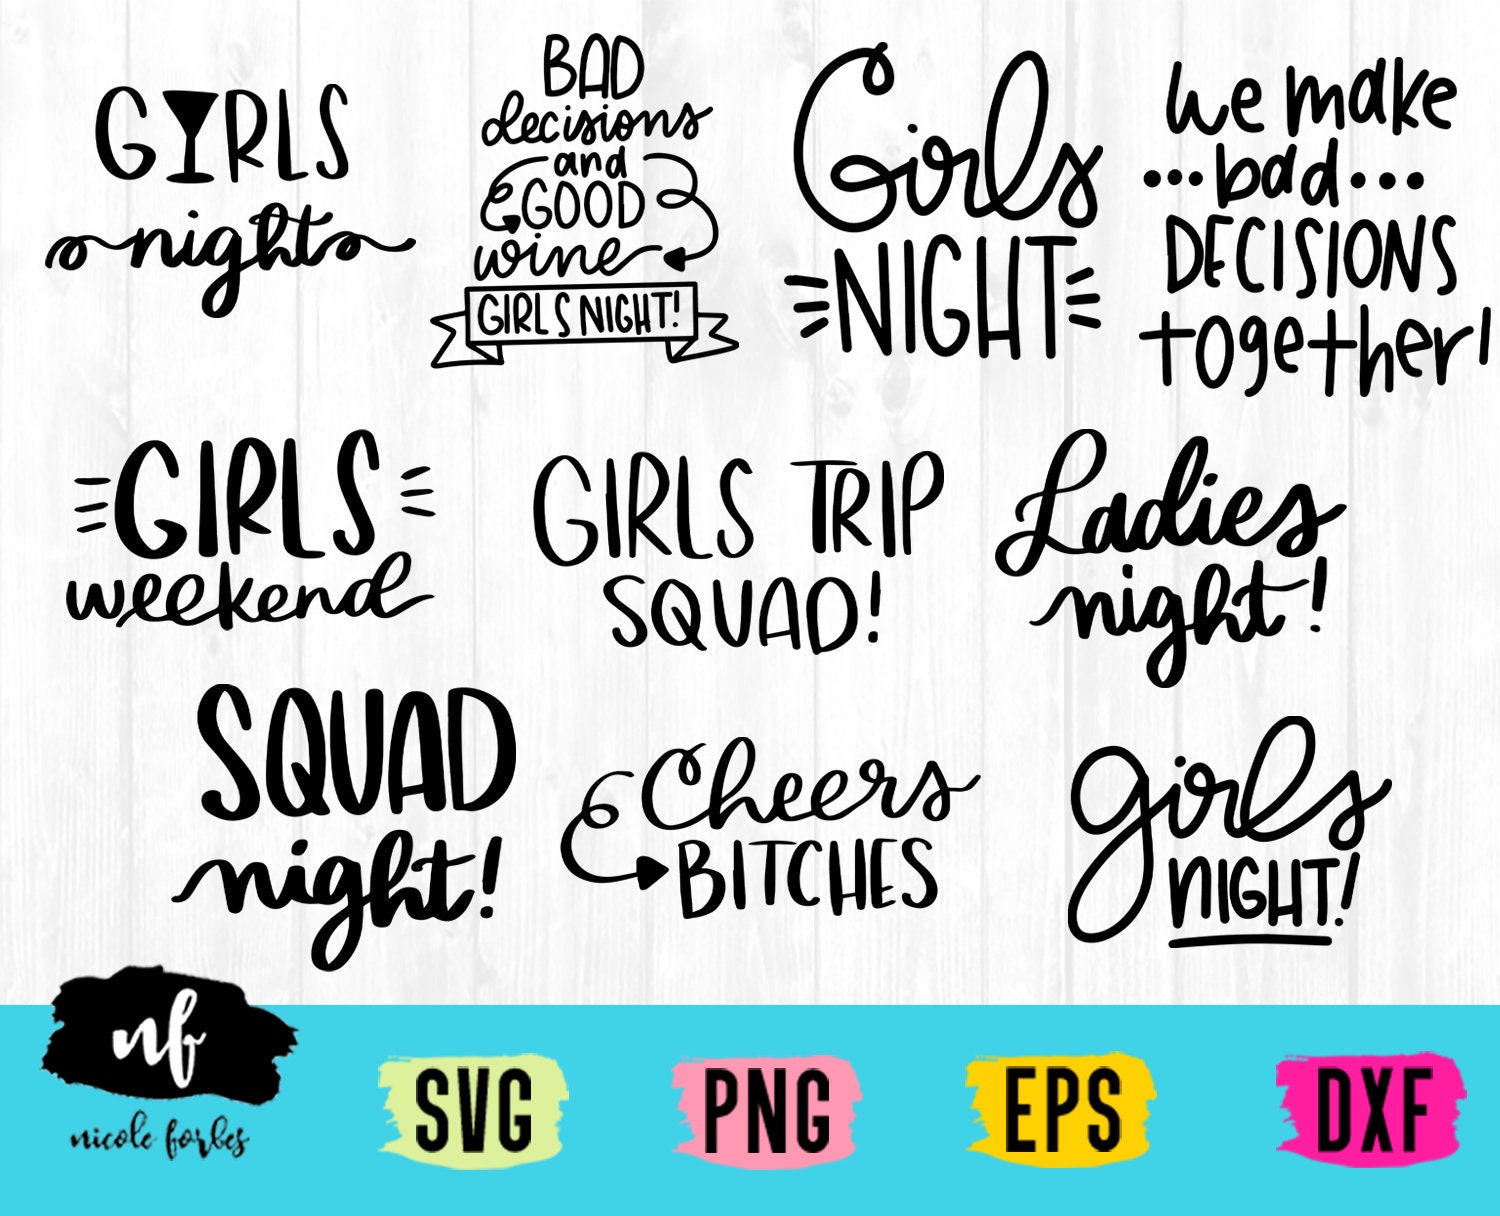 GIRLS
night
BAD
decisions
and
GOOD
wine
GIRLS NIGHT!
Girls
NIGHT
We make
...bad...
DECISIONS
together!
GIRLS
weekend
GIRLS TRIP
SQUAD!
Ladies
night!
SQUAD
night!
Cheers
BITCHES
girls
NIGHT!
nf
nicole forbes
SVG
PNG
EPS
DXF